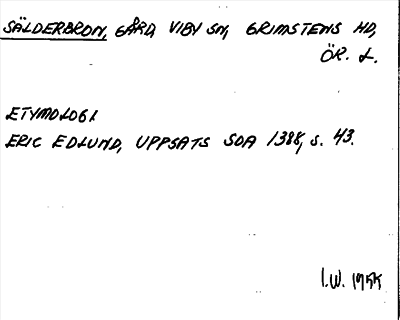 SÄLDERBRON, GÅRD, VIBY SN, GRIMSTENS HD,
ÖR. L.
ETYMOLOGI
ERIC EDLUND, UPPSATS SOA 1388, s. 43.
I.W. 1955